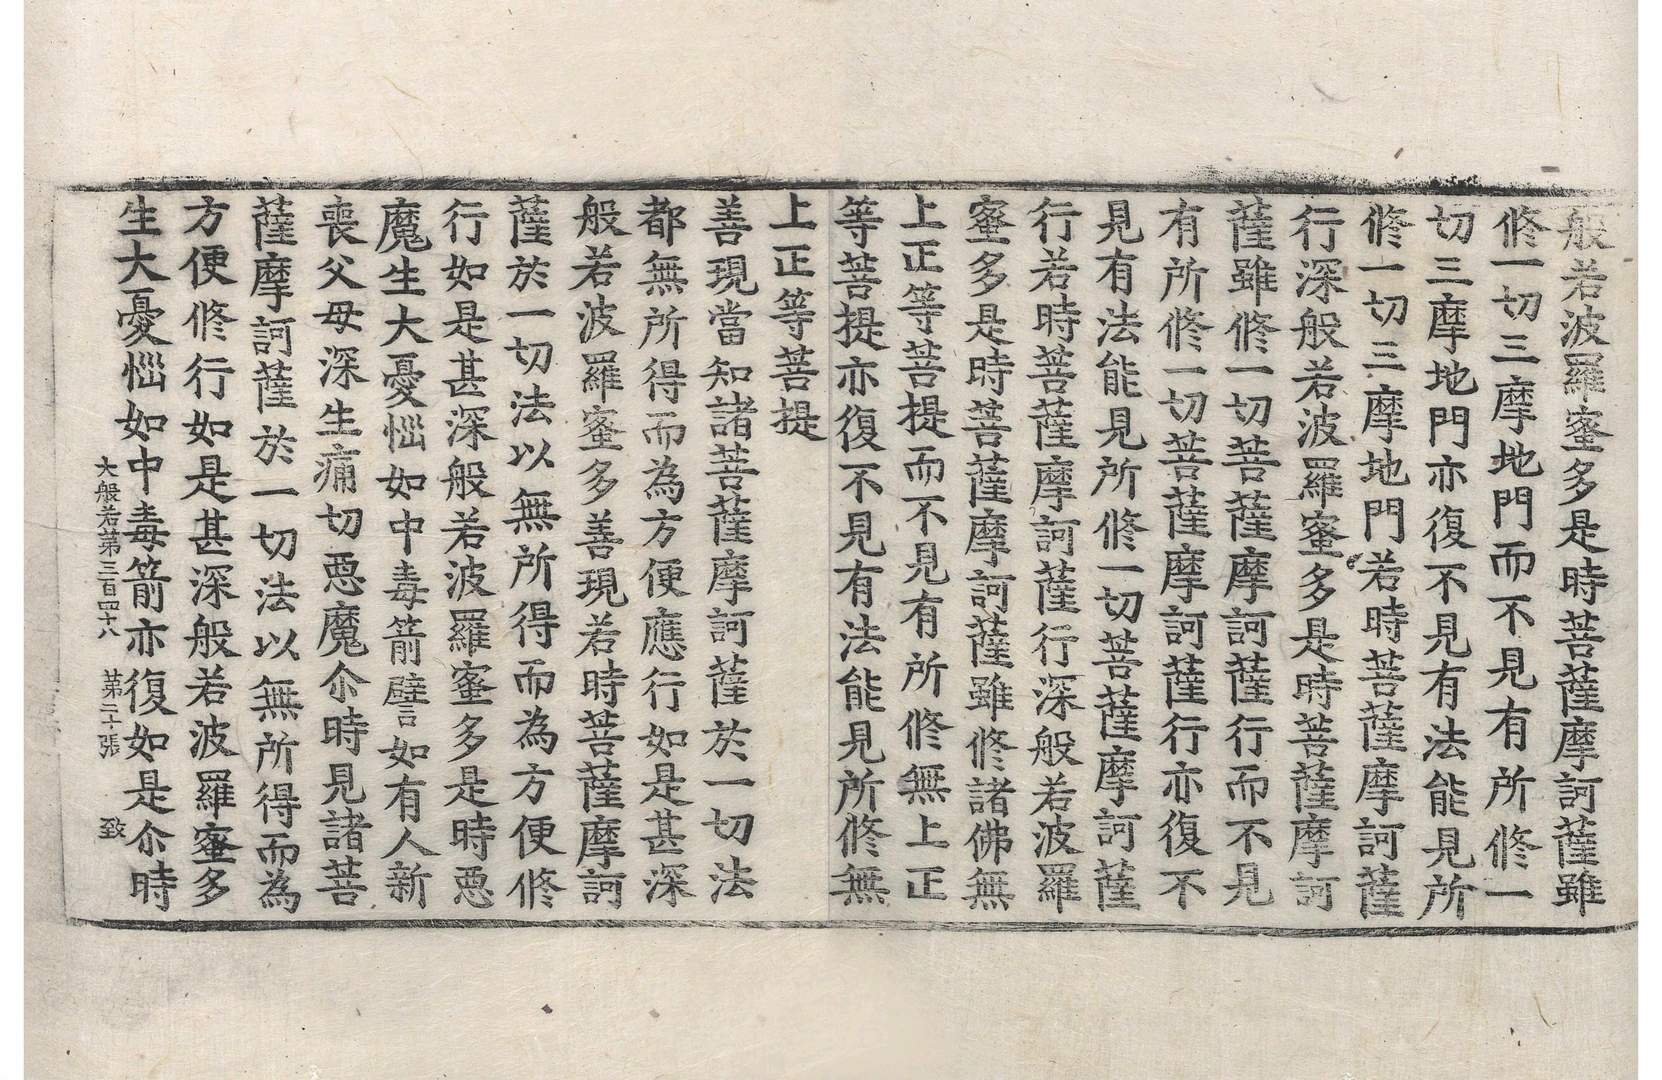 般若波羅蜜多是時菩薩摩訶薩雖
修一切三摩地門而不見有所修一
切三摩地門亦復不見有法能見所
修一切三摩地門若時菩薩摩訶薩
行深般若波羅蜜多是時菩薩摩訶
薩雖修一切菩薩摩訶薩行而不見
有所修一切菩薩摩訶薩行亦復不
見有法能見所修一切菩薩摩訶薩
行若時菩薩摩訶薩行深般若波羅
蜜多是時菩薩摩訶薩雖修諸佛無
上正等菩提而不見有所修無上正
等菩提亦復不見有法能見所修無
上正等菩提
善現當知諸菩薩摩訶薩於一切法
都無所得而為方便應行如是甚深
般若波羅蜜多善現若時菩薩摩訶
薩於一切法以無所得而為方便修
行如是甚深般若波羅蜜多是時惡
魔生大憂惱如中毒箭譬如有人新
喪父母深生痛切惡魔尒時見諸菩
薩摩訶薩於一切法以無所得而為
方便修行如是甚深般若波羅蜜多
生大憂惱如中毒箭亦復如是尒時
大般若第三百四十八 第二十張 致